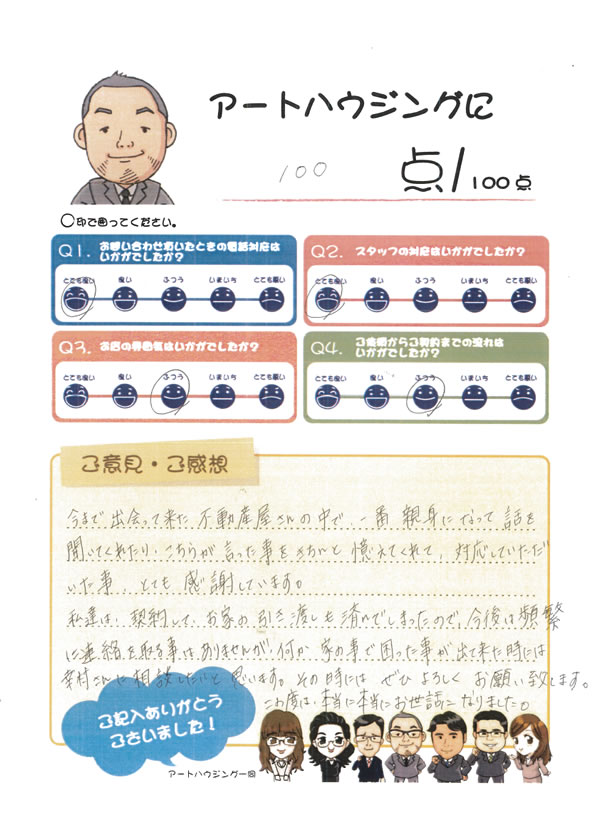 アートハウジングに
100 点/100点
○印で囲ってください。
Q1. お問い合わせあいたときの電話対応は
いかがでしたか?
とても良い 良い ふつう いまいち とても悪い
Q2. スタッフの対応はいかがでしたか?
とても良い 良い ふつう いまいち とても悪い
Q3. お店の雰囲気はいかがでしたか?
とても良い 良い ふつう いまいち とても悪い
Q4. ご来場からご契約までの流れは
いかがでしたか?
とても良い 良い ふつう いまいち とても悪い
ご意見・ご感想
今まで出会って来た不動産屋さんの中で、一番親身になって話を
聞いてくれたり、こちらが言った事をきちんと憶えてくれて、対応していただ
いた事、とても感謝しています。
私達は、契約して、お家の引き渡しも済んでしまったので、今後は頻繁
に連絡を取る事はありませんが、何か家の事で困った事が出て来た時には
幸村さんに相談したいと思います。その時には ぜひ よろしく お願い致します。
この度は、本当に本当にお世話になりました。
ご記入ありがとう
ございました!
アートハウジング一同